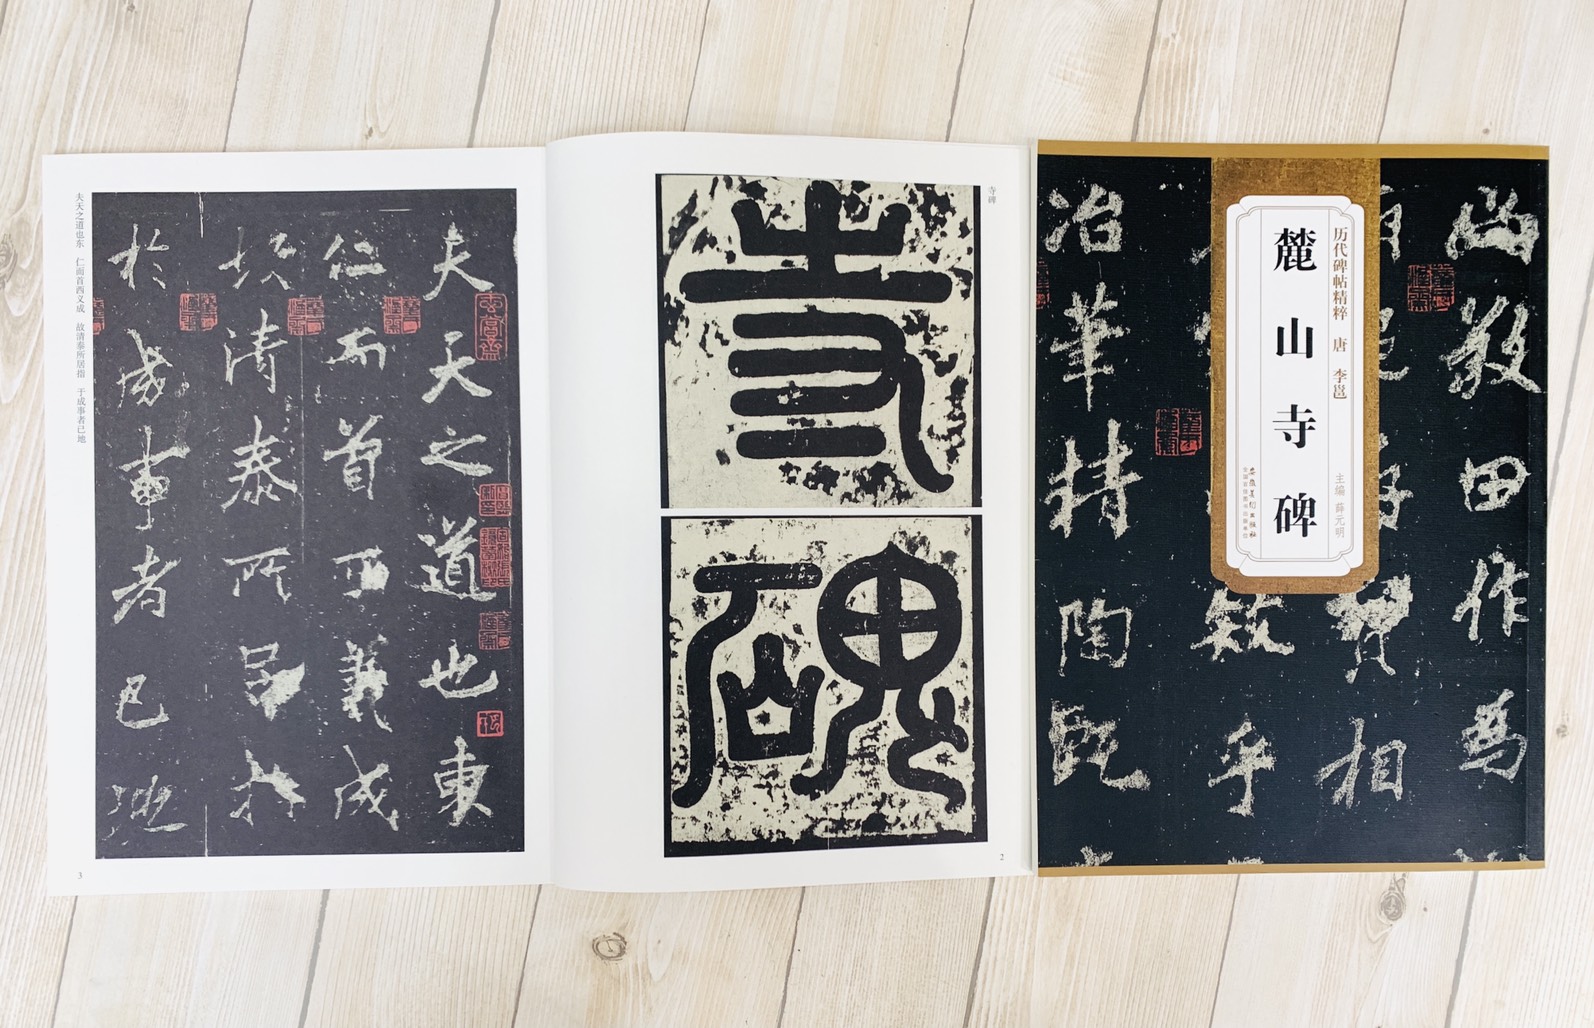 历代碑帖精粹 唐 李邕
麓山寺碑
主编 薛元明
安徽美术出版社
全国百佳图书出版单位
田作為
相
乎
冶華精陶甄
寺碑
寺
碑
2
夫天之道也東
仁而首西義成
故清泰所居指
於成事者已地
夫天之道也东 仁而首西义成 故清泰所居指 于成事者已地
3